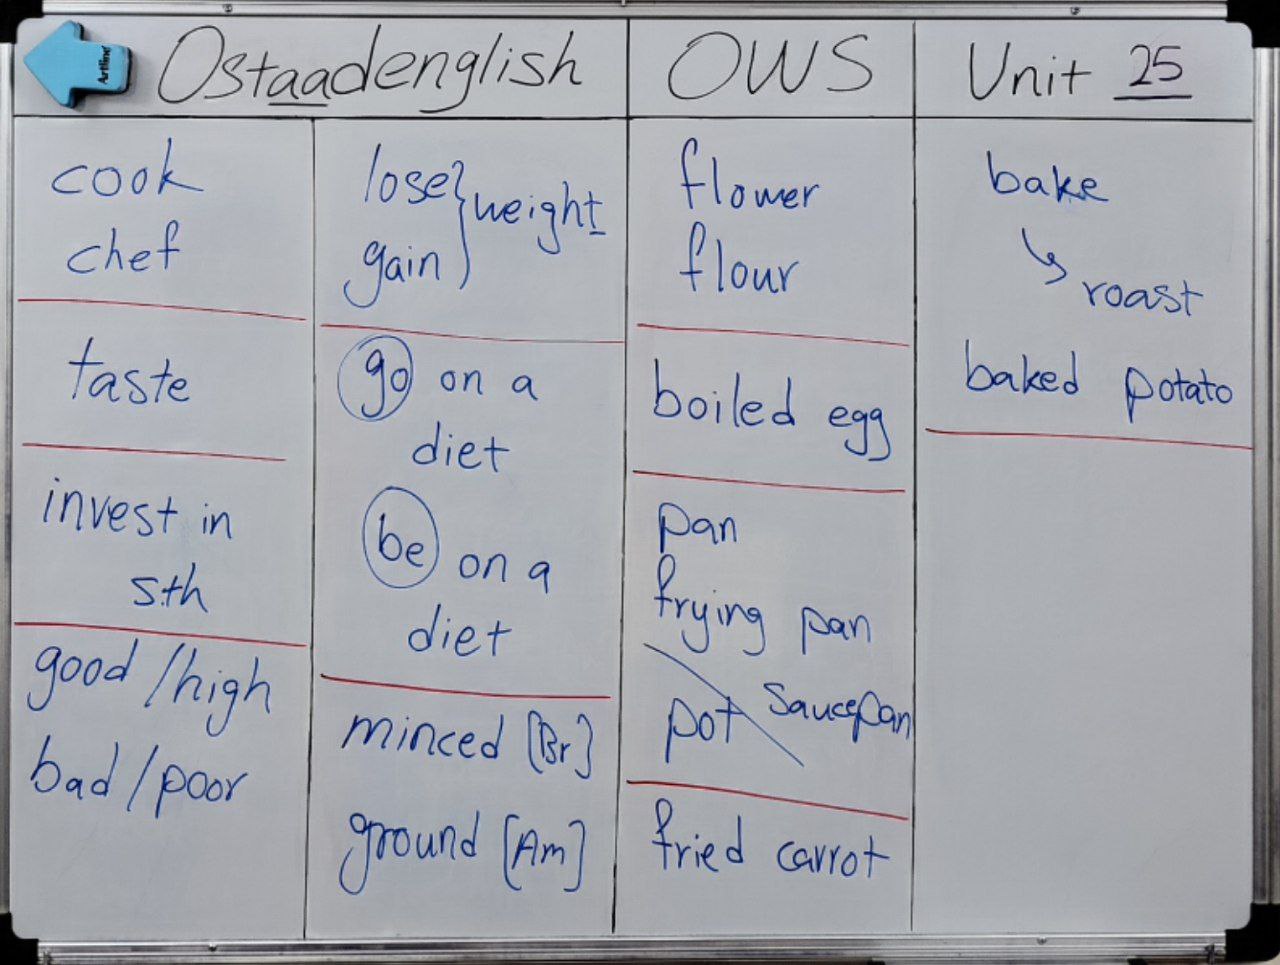 Artline
Ostaadenglish OWS Unit 25
cook
chef
taste
invest in
sth
good / high
bad / poor
lose } weight
gain
go on a
diet
be on a
diet
minced [Br]
ground [Am]
flower
flour
boiled egg
pan
frying pan
pot saucepan
fried carrot
bake
roast
baked potato